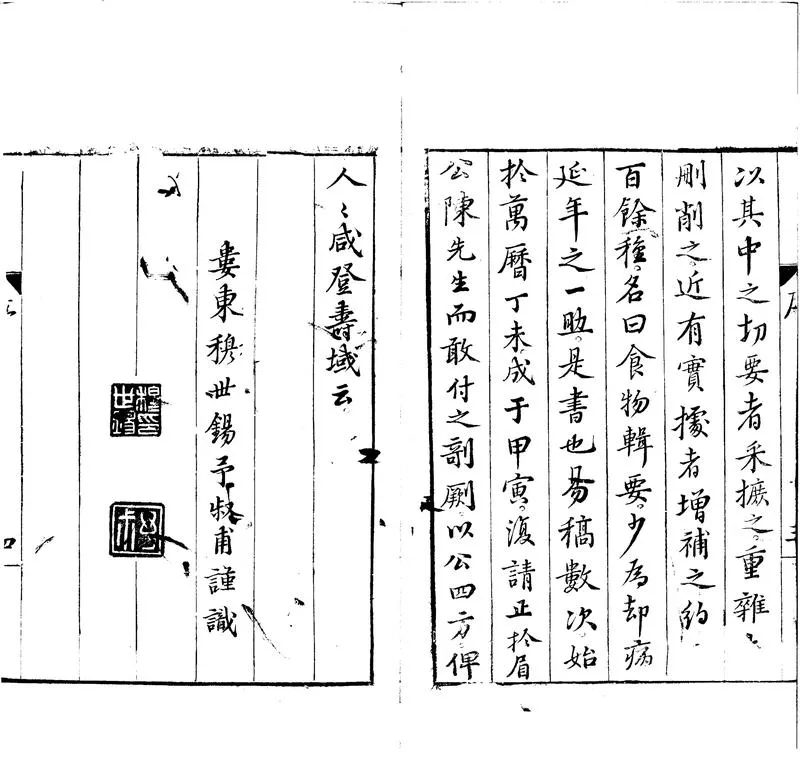 以其中之切要者采摭之重雜
刪削之近有實據者增補之約
百餘種名曰食物輯要少為却病
延年之一助是書也易稿數次始
於萬曆丁未成于甲寅復請正於眉
公陳先生而敢付之剞劂以公四方俾
人〻咸登壽域云
婁東穆世錫予叔甫謹識